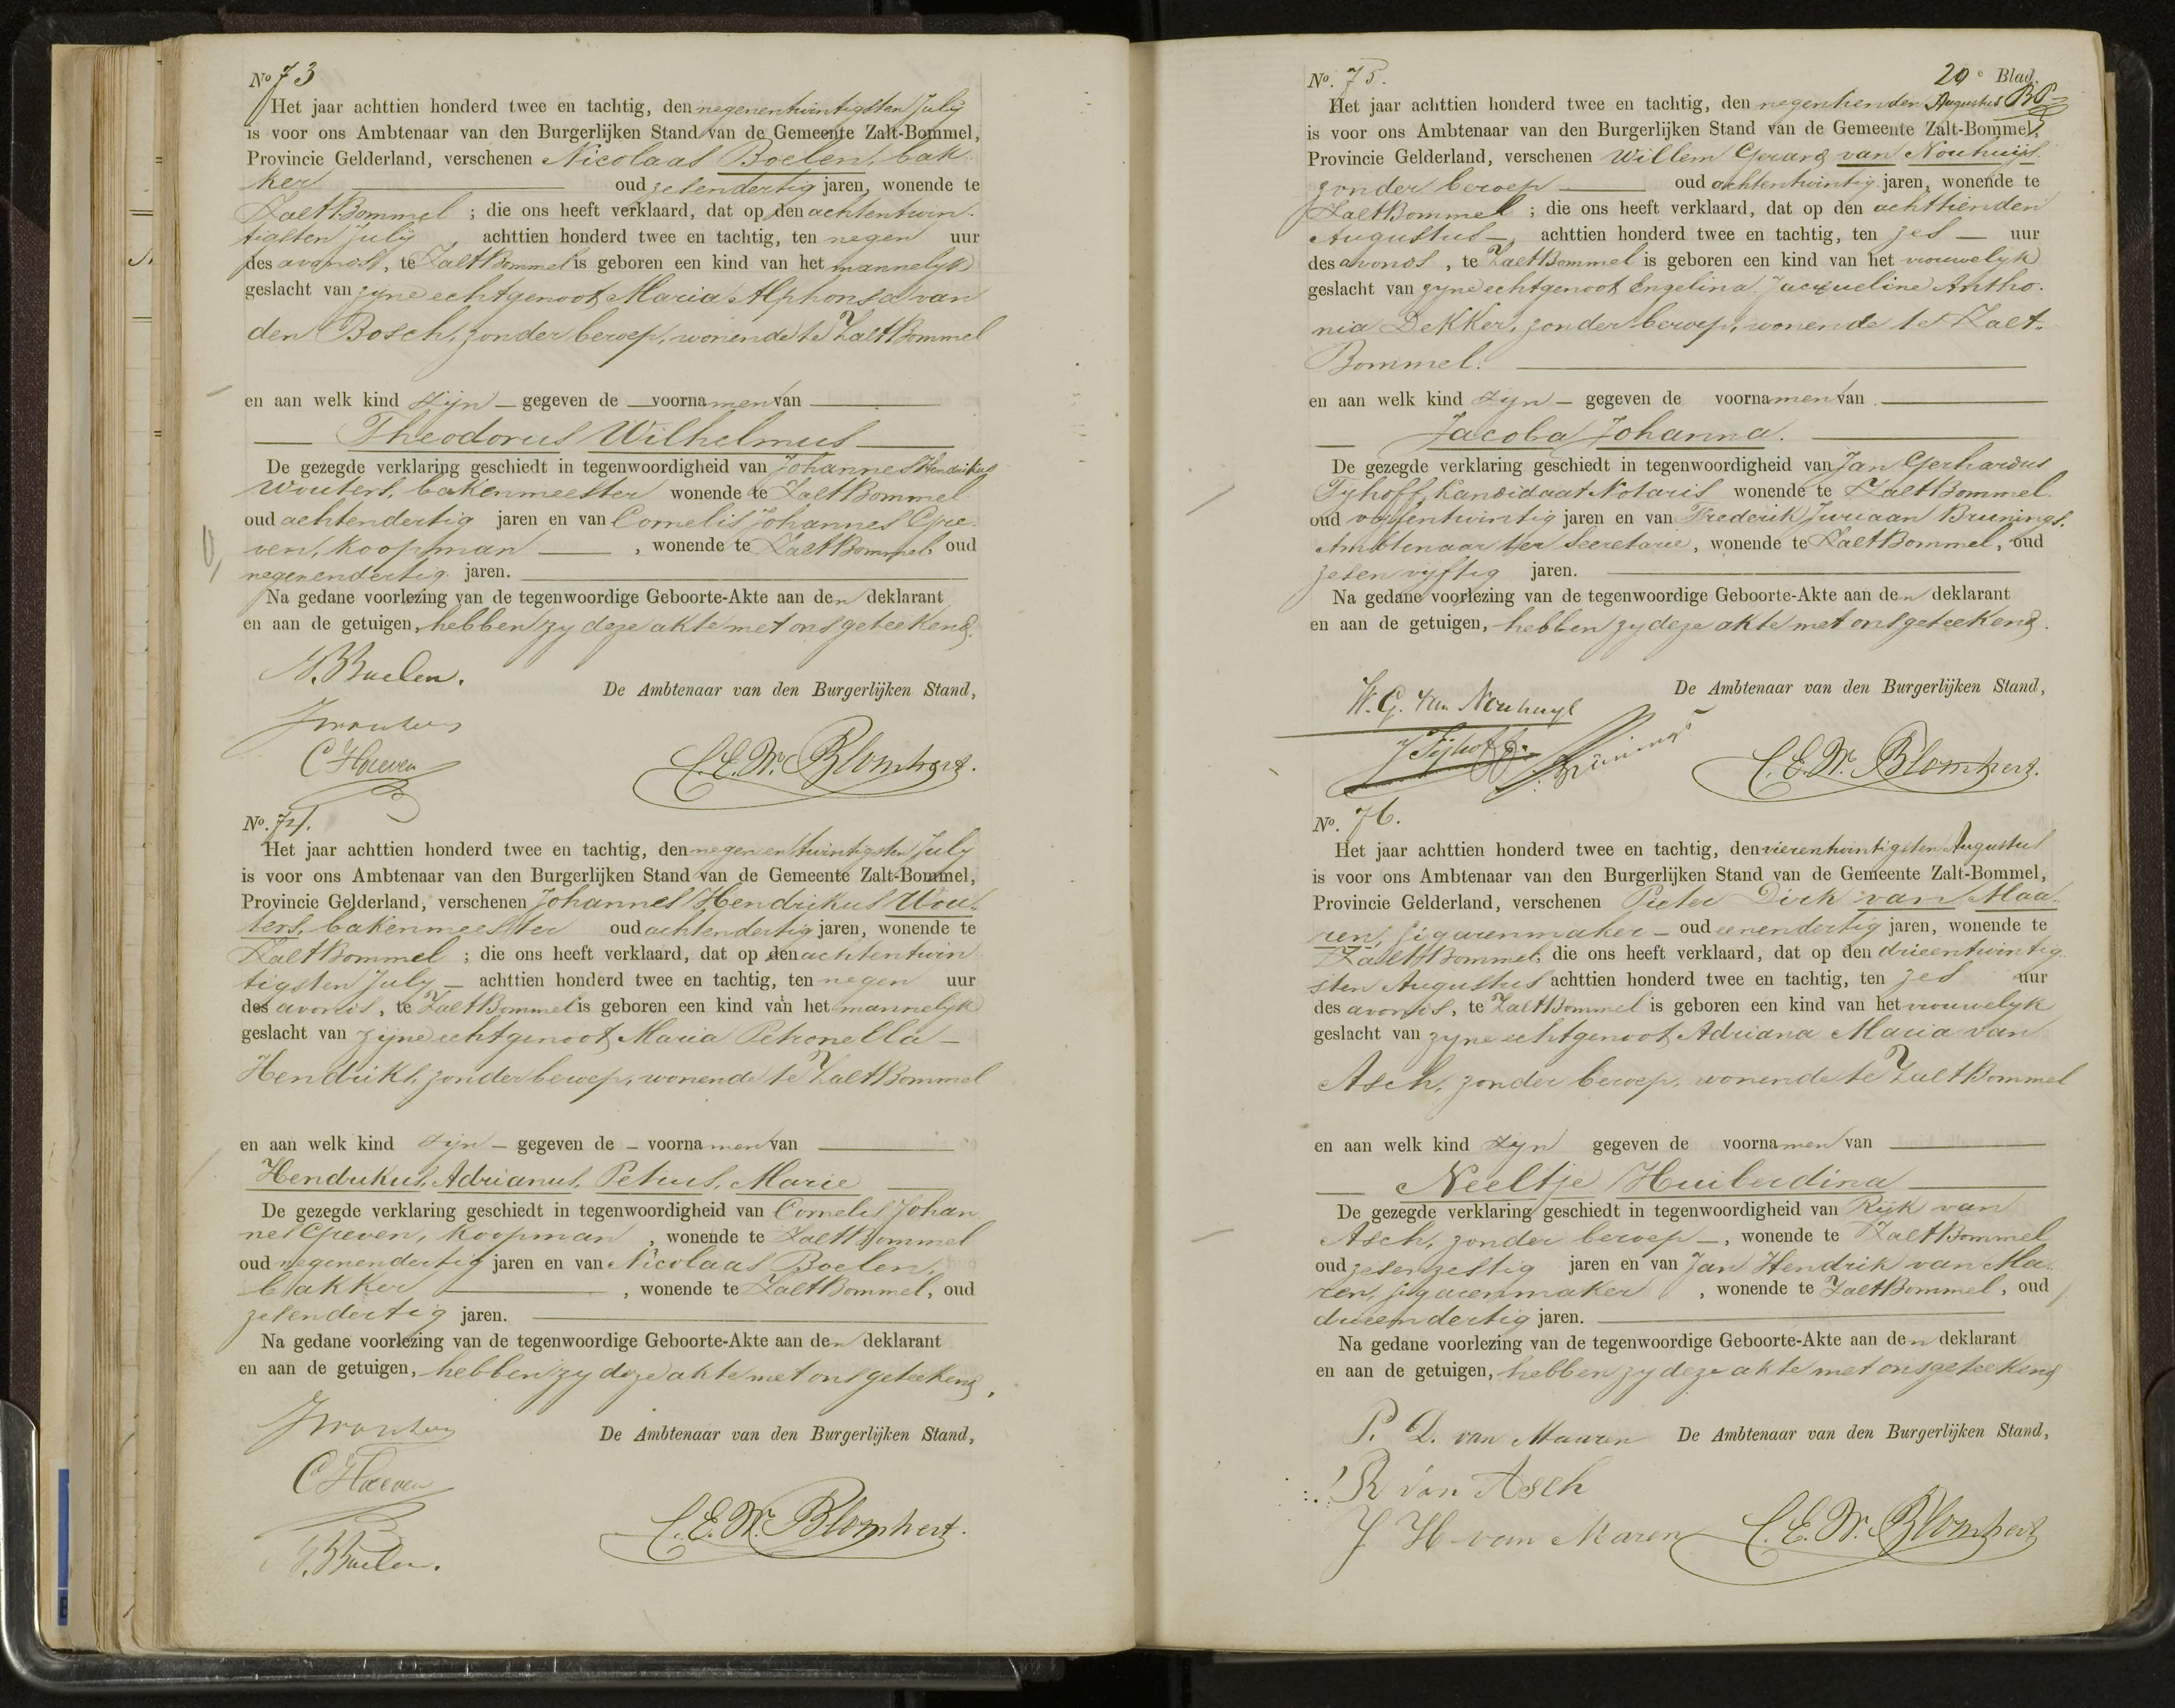 No 73
Het jaar achttien honderd twee en tachtig, den negenentwintigsten July
is voor ons Ambtenaar van den Burgerlijken Stand van de Gemeente Zalt-Bommel,
Provincie Gelderland, verschenen Nicolaas Boelen, bak-
ker oud zesendertig jaren, wonende te
ZaltBommel ; die ons heeft verklaard, dat op den achtentwin-
tigsten July, achttien honderd twee en tachtig, ten negen uur
des avonds, te ZaltBommel is geboren een kind van het mannelyk
geslacht van zyne echtgenoot Maria Alphonsa van
den Bosch, zonder beroep, wonende te ZaltBommel
en aan welk kind zijn – gegeven de voornamen van
Theodorus Wilhelmus
De gezegde verklaring geschiedt in tegenwoordigheid van Johannes Hendrikus
Wouters, bakenmeester wonende te ZaltBommel
oud achtendertig jaren en van Cornelis Johannes Gre-
ven, koopman , wonende te ZaltBommel, oud
negenendertig jaren.
Na gedane voorlezing van de tegenwoordige Geboorte-Akte aan den deklarant
en aan de getuigen, hebben zy deze akte met ons geteekend.
N. Boelen.
De Ambtenaar van den Burgerlijken Stand,
JWouters
C J Greven
C.E.W. Blomhert.
No. 74.
Het jaar achttien honderd twee en tachtig, den negenentwintigsten July
is voor ons Ambtenaar van den Burgerlijken Stand van de Gemeente Zalt-Bommel,
Provincie Gelderland, verschenen Johannes Hendrikus Wou-
ters, bakenmeester oud achtendertig jaren, wonende te
ZaltBommel ; die ons heeft verklaard, dat op den achtentwin-
tigsten July – achttien honderd twee en tachtig, ten negen uur
des avonds, te ZaltBommel is geboren een kind van het mannelyk
geslacht van zijne echtgenoot Maria Petronella –
Hendriks, zonder beroep, wonende te ZaltBommel
en aan welk kind zijn – gegeven de – voornamen van
Hendrikus, Adrianus, Petrus, Marie
De gezegde verklaring geschiedt in tegenwoordigheid van Cornelis Johan
nes Greven, koopman , wonende te ZaltBommel
oud negenendertig jaren en van Nicolaas Boelen,
bakker , wonende te ZaltBommel, oud
zesendertig jaren.
Na gedane voorlezing van de tegenwoordige Geboorte-Akte aan den deklarant
en aan de getuigen, hebben zy deze akte met ons geteekend,
JWouters
De Ambtenaar van den Burgerlijken Stand,
C J Greven
C.E.W. Blomhert.
N. Boelen.
20e Blad.
No. 75.
Het jaar achttien honderd twee en tachtig, den negentienden Augustus
is voor ons Ambtenaar van den Burgerlijken Stand van de Gemeente Zalt-Bommel,
Provincie Gelderland, verschenen Willem Gerard van Nouhuijs
zonder beroep oud achtentwintig jaren, wonende te
ZaltBommel ; die ons heeft verklaard, dat op den achttienden
Augustus –, achttien honderd twee en tachtig, ten zes – uur
des avonds , te ZaltBommel is geboren een kind van het vrouwelyk
geslacht van zyne echtgenoot Engelina Jacqueline Antho-
nia Dekker, zonder beroep, wonende te Zalt-
Bommel.
en aan welk kind zyn – gegeven de voornamen van
Jacoba Johanna.
De gezegde verklaring geschiedt in tegenwoordigheid van Jan Gerhardus
Tyhoff, Kandidaat Notaris wonende te ZaltBommel
oud vyfentwintig jaren en van Frederik Juriaan Brunings,
Ambtenaar ter Secretarie, wonende te ZaltBommel, oud
zesenvyftig jaren.
Na gedane voorlezing van de tegenwoordige Geboorte-Akte aan den deklarant
en aan de getuigen, hebben zy deze akte met ons geteekend.
W. G. van Nouhuys
De Ambtenaar van den Burgerlijken Stand,
J Tijhoff
Brunings
C.E.W. Blomhert.
No. 76.
Het jaar achttien honderd twee en tachtig, den vierentwintigsten Augustus
is voor ons Ambtenaar van den Burgerlijken Stand van de Gemeente Zalt-Bommel,
Provincie Gelderland, verschenen Pieter Dirk van Maa-
ren, sigarenmaker – oud eenendertig jaren, wonende te
ZaltBommel; die ons heeft verklaard, dat op den drieentwintig-
sten Augustus achttien honderd twee en tachtig, ten zes uur
des avonds, te ZaltBommel is geboren een kind van het vrouwelyk
geslacht van zyne echtgenoot Adriana Maria van
Asch, zonder beroep, wonende te ZaltBommel
en aan welk kind zyn gegeven de voornamen van
Neeltje Huiberdina
De gezegde verklaring geschiedt in tegenwoordigheid van Rijk van
Asch, zonder beroep –, wonende te ZaltBommel
oud zesenzestig jaren en van Jan Hendrik van Ma-
ren, sigarenmaker , wonende te ZaltBommel, oud
drieendertig jaren.
Na gedane voorlezing van de tegenwoordige Geboorte-Akte aan den deklarant
en aan de getuigen, hebben zy deze akte met ons geteekend
P. D. van Maaren
De Ambtenaar van den Burgerlijken Stand,
R van Asch
J H van Maren
C.E.W. Blomhert